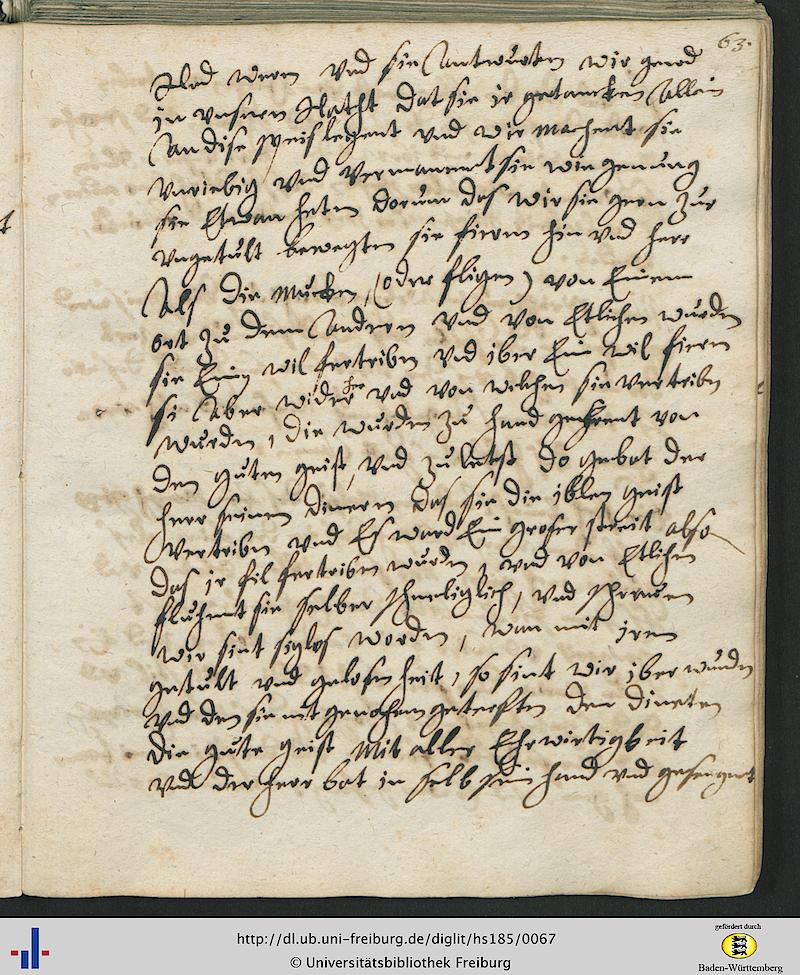 63.
Rad wern vnd sie Antwurten wir gend
in vnsern Racht dat sie ir getancken Allein
An dise speis legent vnd wir machent sie
vnriebig vnd vermanent sie wie genung
sie Etwan heten dorum das wir sie gern zur
vngetult bewegten sie fieren hin vnd herr
Als die Mucken, (oder fligen) von Einem
ort zu dem Andern vnd von Etlichen wurden
sie Ein wil fertriben vnd iber Ein wil fieren
si Aber wider her vnd von welchen sie vertriben
wurden, die wurden zu hand gekrent von
den guten geist, vnd zu letst do gebot der
herr seinen dinern das sie die iblen geist
vertriben vnd Es ward Ein groser streit also
das ir fil fertriben wurden, vnd von Etlichen
fluhent sie selber schmeliglich, vnd schruwen
wir sint siglos worden, wan mit irem
getult vnd gelosenheit, so sint wir iberwunden
vnd den sie mit genochen geterften den dineten
die gute geist Mit aller Ehrwirtigkeit
vnd der herr bot in selb sein hand vnd gesengnet
http://dl.ub.uni-freiburg.de/diglit/hs185/0067
© Universitätsbibliothek Freiburg
gefördert durch
Baden-Württemberg